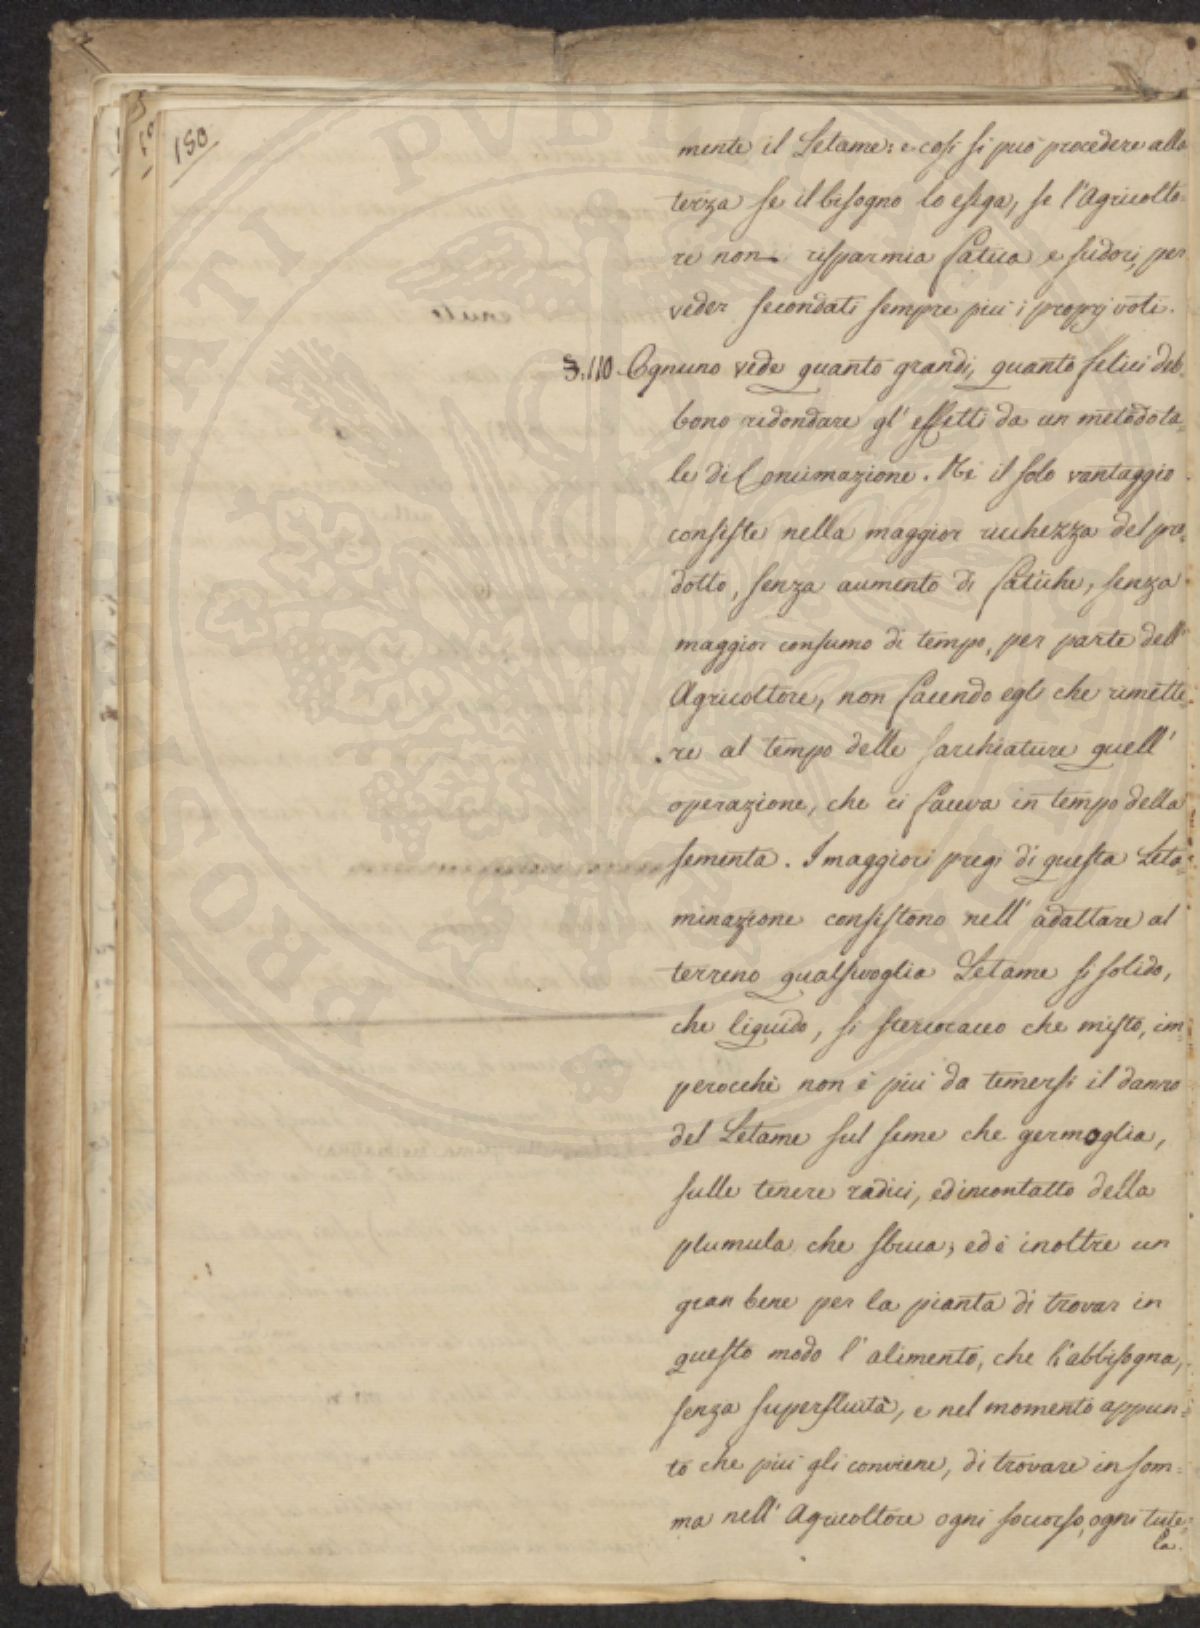 180
mente il Letame: e così si può procedere alla
terza se il bisogno lo esiga, se l'Agricolto-
re non risparmia fatica e sudori, per
veder secondati sempre più i proprj voti.
§.110. Ognuno vede quanto grandi, quanto felici deb-
bono ridondare gl'effetti da un metodo ta-
le di Concimazione. Nè il solo vantaggio
consiste nella maggior ricchezza del pro-
dotto, senza aumento di fatiche, senza
maggior consumo di tempo, per parte dell'
Agricoltore, non facendo egli che rimette-
re al tempo delle sarchiature quell'
operazione, che ei faceva in tempo della
sementa. I maggiori pregi di questa Leta-
minazione consistono nell'adattare al
terreno qualsivoglia Letame sì solido,
che liquido, sì stercoraceo che misto, im-
perocchè non è più da temersi il danno
del Letame sul seme che germoglia,
sulle tenere radici, ed in contatto della
plumula che sbuca; ed è inoltre un
gran bene per la pianta di trovar in
questo modo l'alimento, che l'abbisogna,
senza superfluità, e nel momento appun-
to che più gli conviene, di trovare in som-
ma nell'Agricoltore ogni soccorso, ogni tute-
la.
PROSPERITATI PUBLICAE